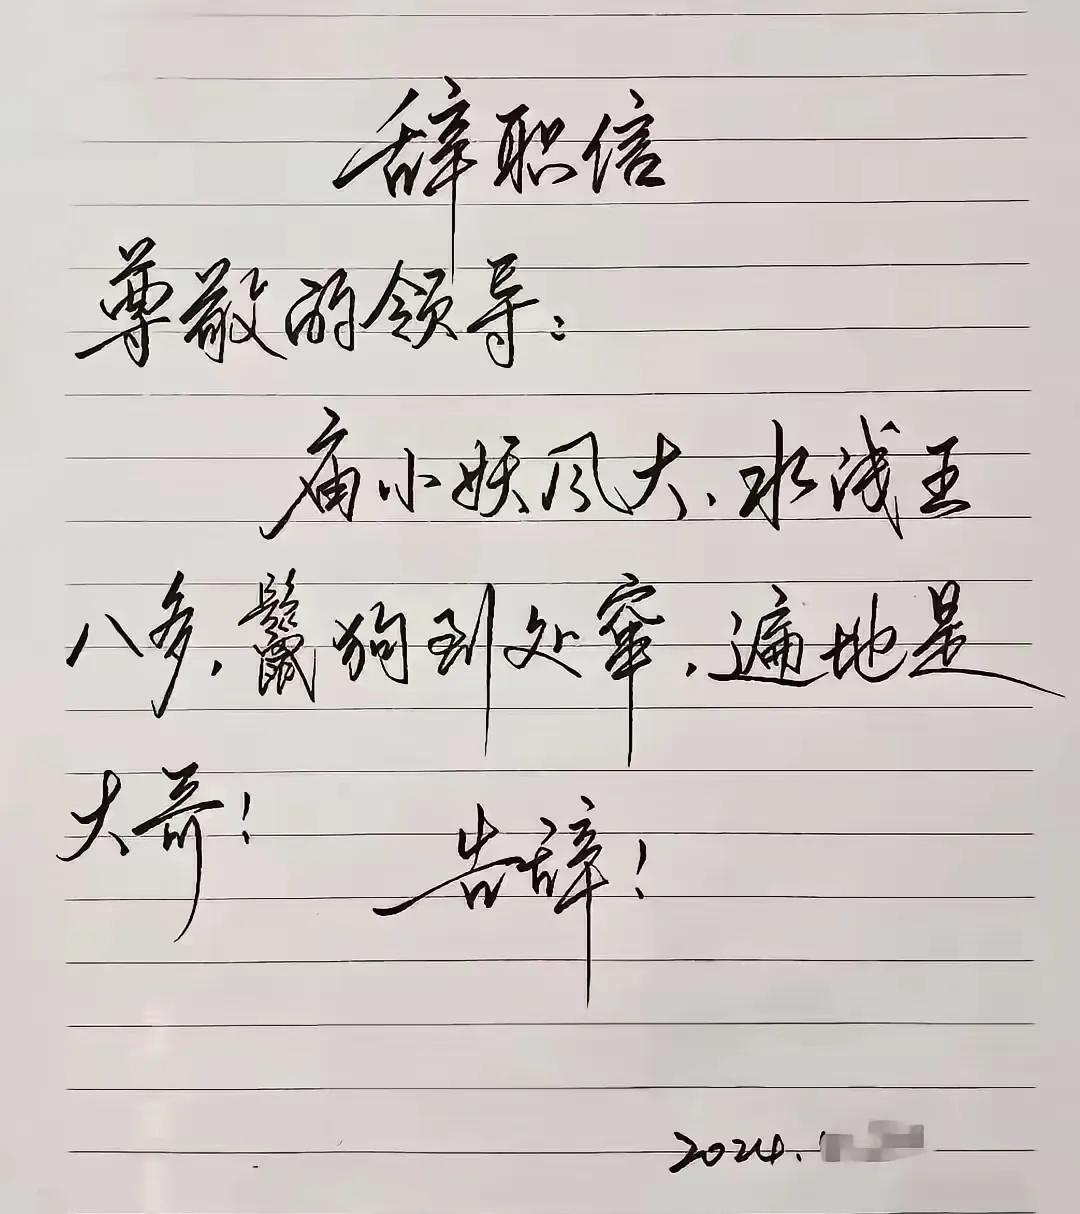 辞职信
尊敬的领导：
庙小妖风大、水浅王
八多，鬣狗到处窜，遍地是
大哥！
告辞！
2024.